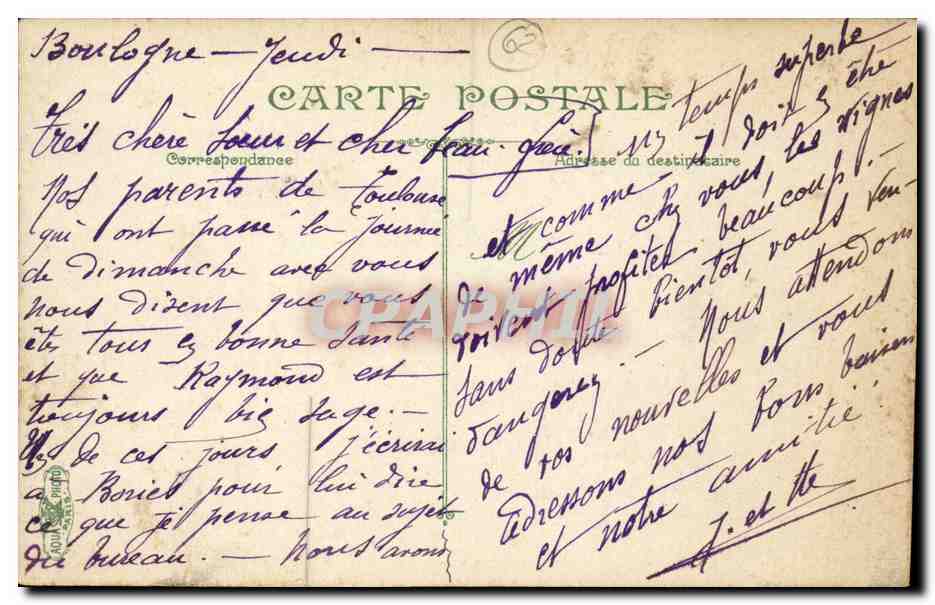 Boulogne — Jeudi —
63
CARTE POSTALE
Très chère Soeur et cher beau frère.
Correspondance
Adresse du destinataire
Nos parents de Toulouse
qui ont passé la journée
de dimanche avec vous
nous disent que vous
êtes tous en bonne santé
et que Raymond est
toujours bien sage. —
Un de ces jours j'écrirai
à Bories pour lui dire
ce que je pense au sujet
du bureau. — Nous avons
un temps superbe
et comme il doit en être
de même chez vous, les vignes
doivent profiter beaucoup. —
Sans doute bientôt, vous ven-
dangerez. — Nous attendons
de vos nouvelles et vous
adressons nos bons baisers
et notre amitié.
J. et
AQUA PHOTO
PARIS
CPAPHIL